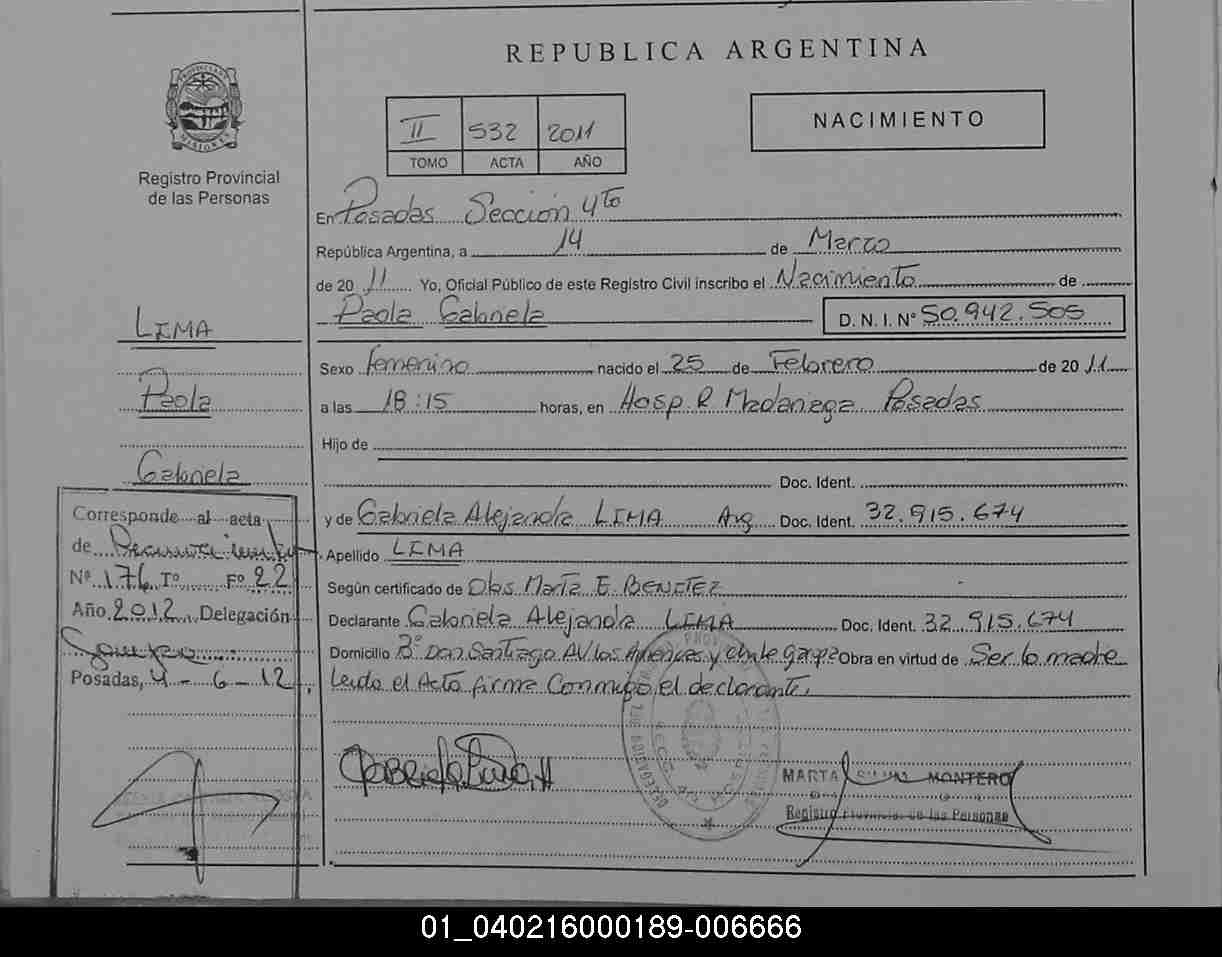 REPUBLICA ARGENTINA
PROVINCIA DE
MISIONES
Registro Provincial
de las Personas
II 532 2011
TOMO ACTA AÑO
NACIMIENTO
En Posadas Sección 4to
República Argentina, a 14 de Marzo
de 20 11 Yo, Oficial Público de este Registro Civil inscribo el Nacimiento de
Paola Gabriela D. N. I. N° 50.942.505
Sexo femenino nacido el 25 de Febrero de 20 11
a las 18:15 horas, en Hosp. R Madariaga Posadas
Hijo de
Doc. Ident.
y de Gabriela Alejandra LIMA Arg Doc. Ident. 32.915.674
Apellido LIMA
Según certificado de Obs. Marta E. BENITEZ
Declarante Gabriela Alejandra LIMA Doc. Ident. 32.915.674
Domicilio B° Don Santiago AV las Américas y Chile Garupa Obra en virtud de Ser la madre
Leida el Acta firma Conmigo el declarante.
LIMA
Paola
Gabriela
Corresponde al acta
de Reconocimiento
Nº 176 Tº Fº 22
Año 2012 Delegación
Posadas, 4 - 6 - 12
Gabriela Lima A
MARTA MONTERO
Registro Provincial de las Personas
01_040216000189-006666